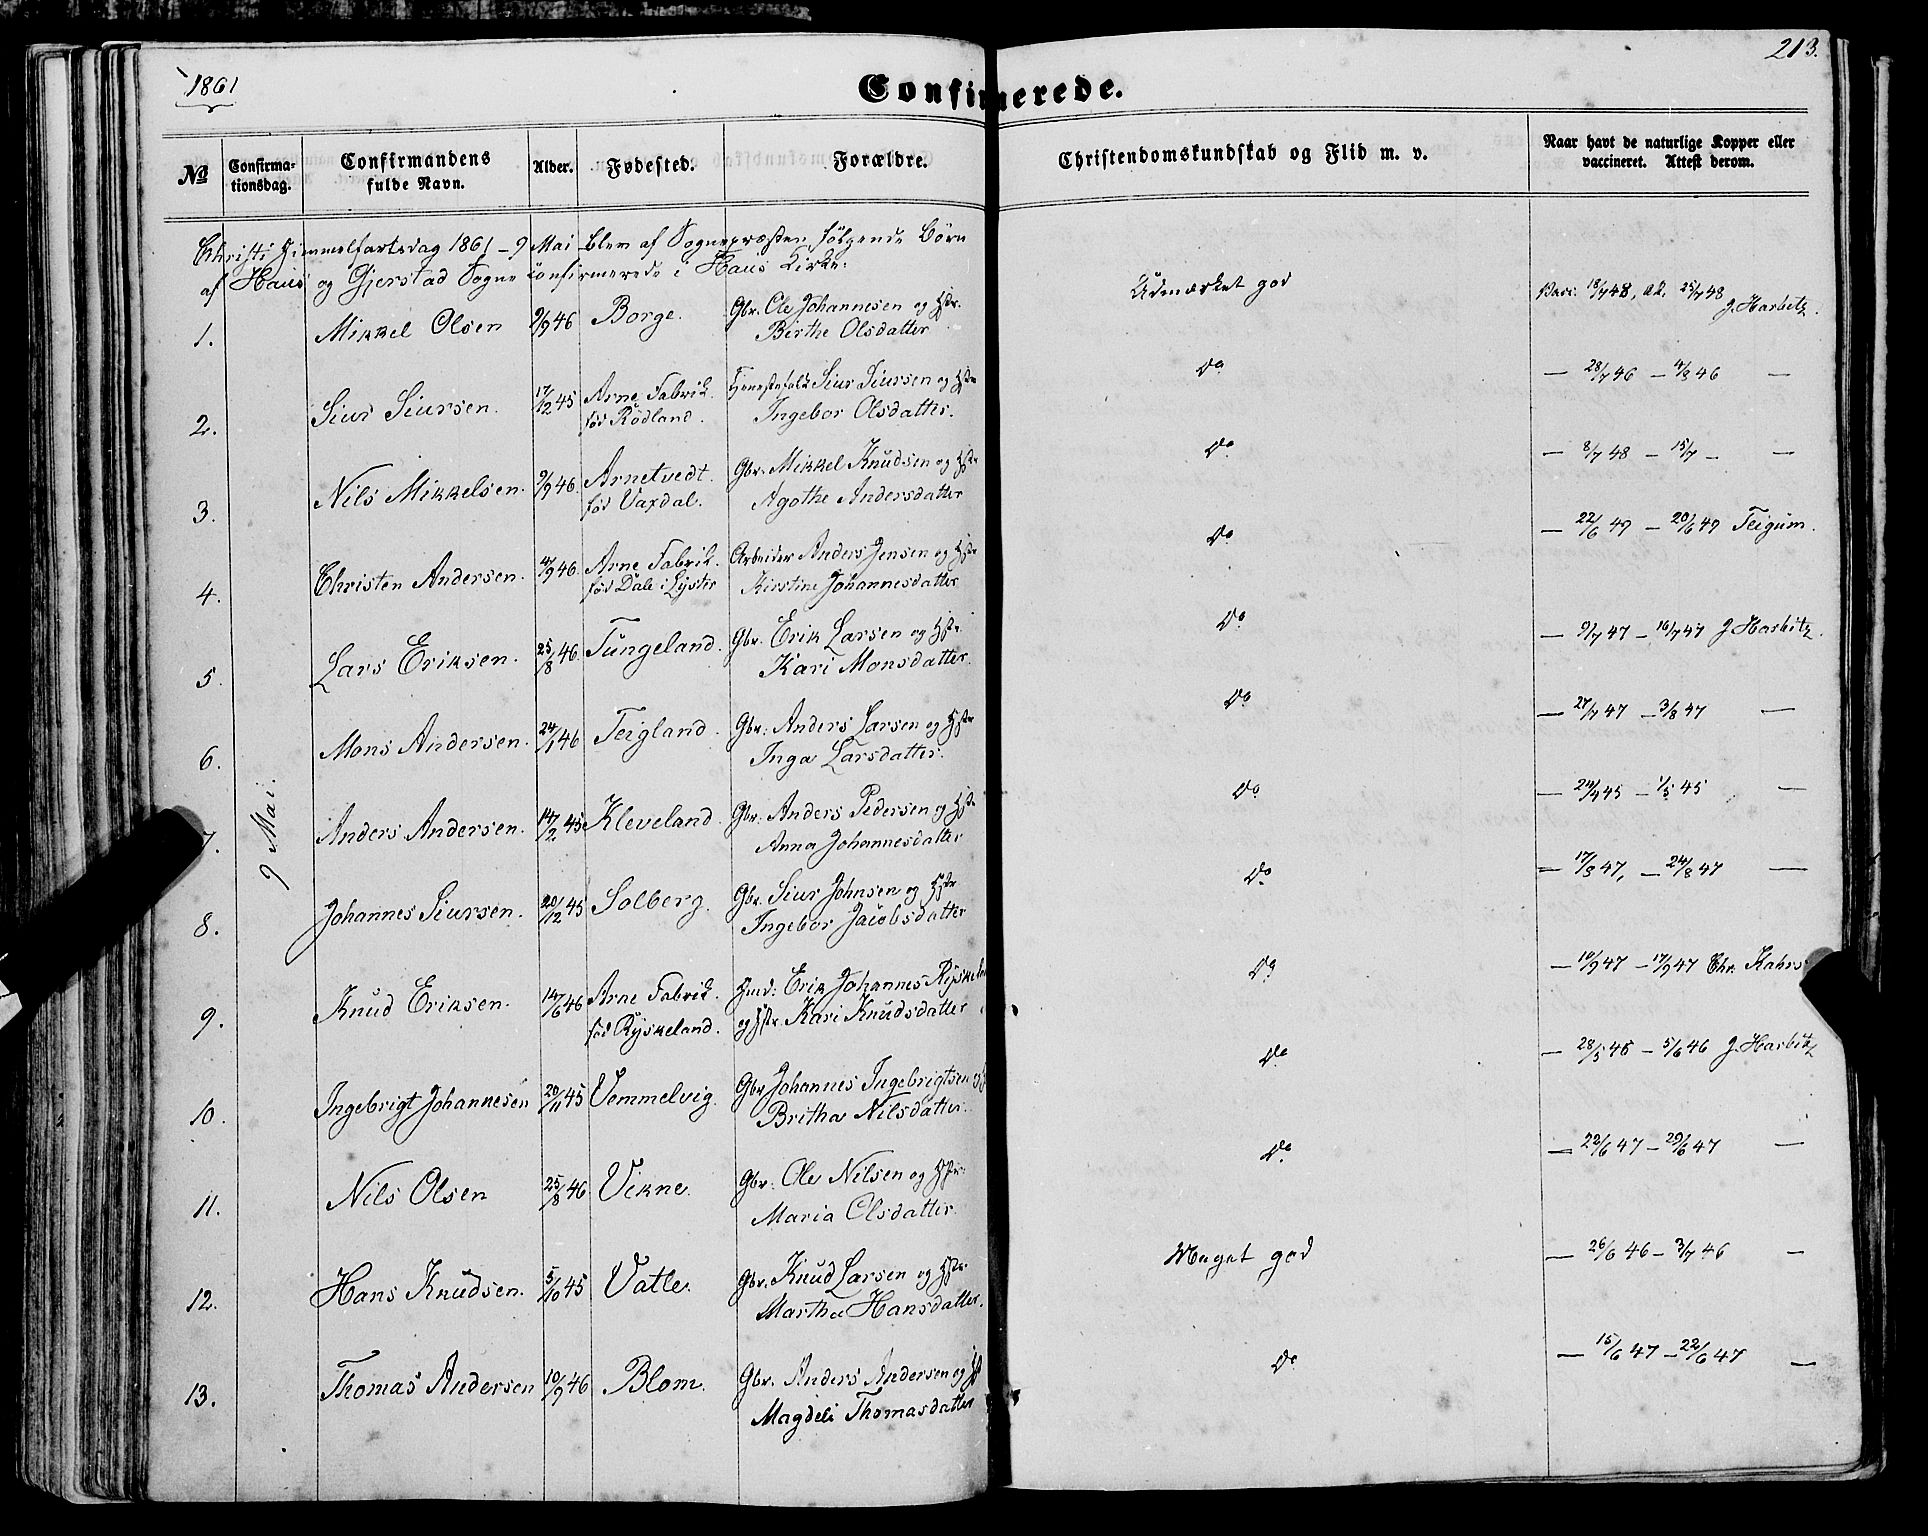 1861
213.
Confirmerede.
No
Confirma-
tionsdag.
Confirmandens
fulde Navn.
Alder.
Fødested.
Forældre.
Christendomskundskab og Flid m. v.
Naar havt de naturlige Kopper eller
vaccineret. Attest derom.
Christi Himmelfartsdag 1861 - 9 Mai blev af Sognepræsten følgende Børn
af Haus og Gjerstad Sogne confirmerede i Haus Kirke:
9 Mai.
1. Mikkel Olsen 9/9 46 Borge. Gbr. Ole Johannesen og Hstr. Udmærket god Vacc. 18/7 48, att. 25/7 48
Birthe Olsdatter J. Harbitz.
2. Siur Siursen. 17/12 45 Arne Fabrik. Tjenestefolk Siur Siursen og Hstr Do — 28/7 46 — 4/8 46 —
fød Rødland. Ingebor Olsdatter.
3. Nils Mikkelsen. 9/9 46. Arnetvedt. Gbr. Mikkel Knudsen og Hstr Do — 8/7 48 — 15/7 — —
fød Vaxdal. Agothe Andersdatter
4. Christen Andersen. 4/9 46 Arne Fabrik. Arbeider Anders Jensen og Hstr Do — 22/6 49 — 20/6 49 Teigum.
fød Dale i Lyster Kirstine Johannesdatter
5. Lars Eriksen. 25/8 46. Tungeland. Gbr. Erik Larsen og Hstr. Do — 9/7 47 — 16/7 47 J Harbitz.
Kari Monsdatter.
6. Mons Andersen. 24/1 46 Teigland. Gbr. Anders Larsen og Hstr Do — 27/7 47 — 3/8 47 —
Inga Larsdatter.
7. Anders Andersen. 14/2 45 Kleveland. Gbr. Anders Pedersen og Hstr Do — 24/4 45 — 1/5 45 —
Anna Johannesdatter
8. Johannes Siursen. 20/12 45 Solberg. Gbr. Siur Johnsen og Hstr Do — 17/8 47, — 24/8 47 —
Ingebor Jacobsdatter
9. Knud Eriksen. 14/6 46 Arne Fabrik. Hmd: Erik Johannes Do — 10/9 47 — 17/9 47 Chr. Kahrs
fød Ryskeland. og Hstr. Kari Knudsdatter
10. Ingebrigt Johannesen 20/11 45 Vemmelvig. Gbr Johannes Ingebrigtsen og Do — 28/5 46 — 5/6 46 J. Harbitz
Britha Nilsdatter.
11. Nils Olsen 25/8 46 Vikne. Gbr. Ole Nilsen og Hstr. Do — 22/6 47 — 29/6 47 —
Maria Olsdatter.
12. Hans Knudsen. 5/10 45 Vatle. Gbr. Knud Larsen og Hstr Meget god — 26/6 46 — 3/7 46 —
Martha Hansdatter.
13. Thomas Andersen 10/9 46 Blom. Gbr. Anders Andersen og Do — 15/6 47 — 22/6 47 —
Magdeli Thomasdatter